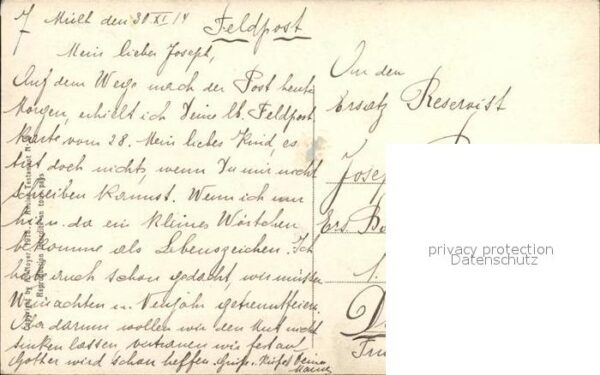 Feldpost
den 30 XI 14
Mein lieber Joseph,
Auf dem Wege nach der Post heute
Morgen, erhielt ich Deine lb. Feldpost
karte vom 28. Mein liebes Kind, es
tut doch nichts, wenn Du mir nicht
schreiben kannst. Wenn ich nur
hin u. da ein kleines Wörtchen
bekomme als Lebenszeichen. Ich
habe auch schon gedacht, wir müssen
Weinachten u. Neujahr getrennt feiern.
Aber darum wollen wir den Mut nicht
sinken lassen, vertrauen wir fest auf
Gott er wird schon helfen. Grüße Deine
Mama
An den
Ersatz Reservist
Ers.
privacy protection
Datenschutz